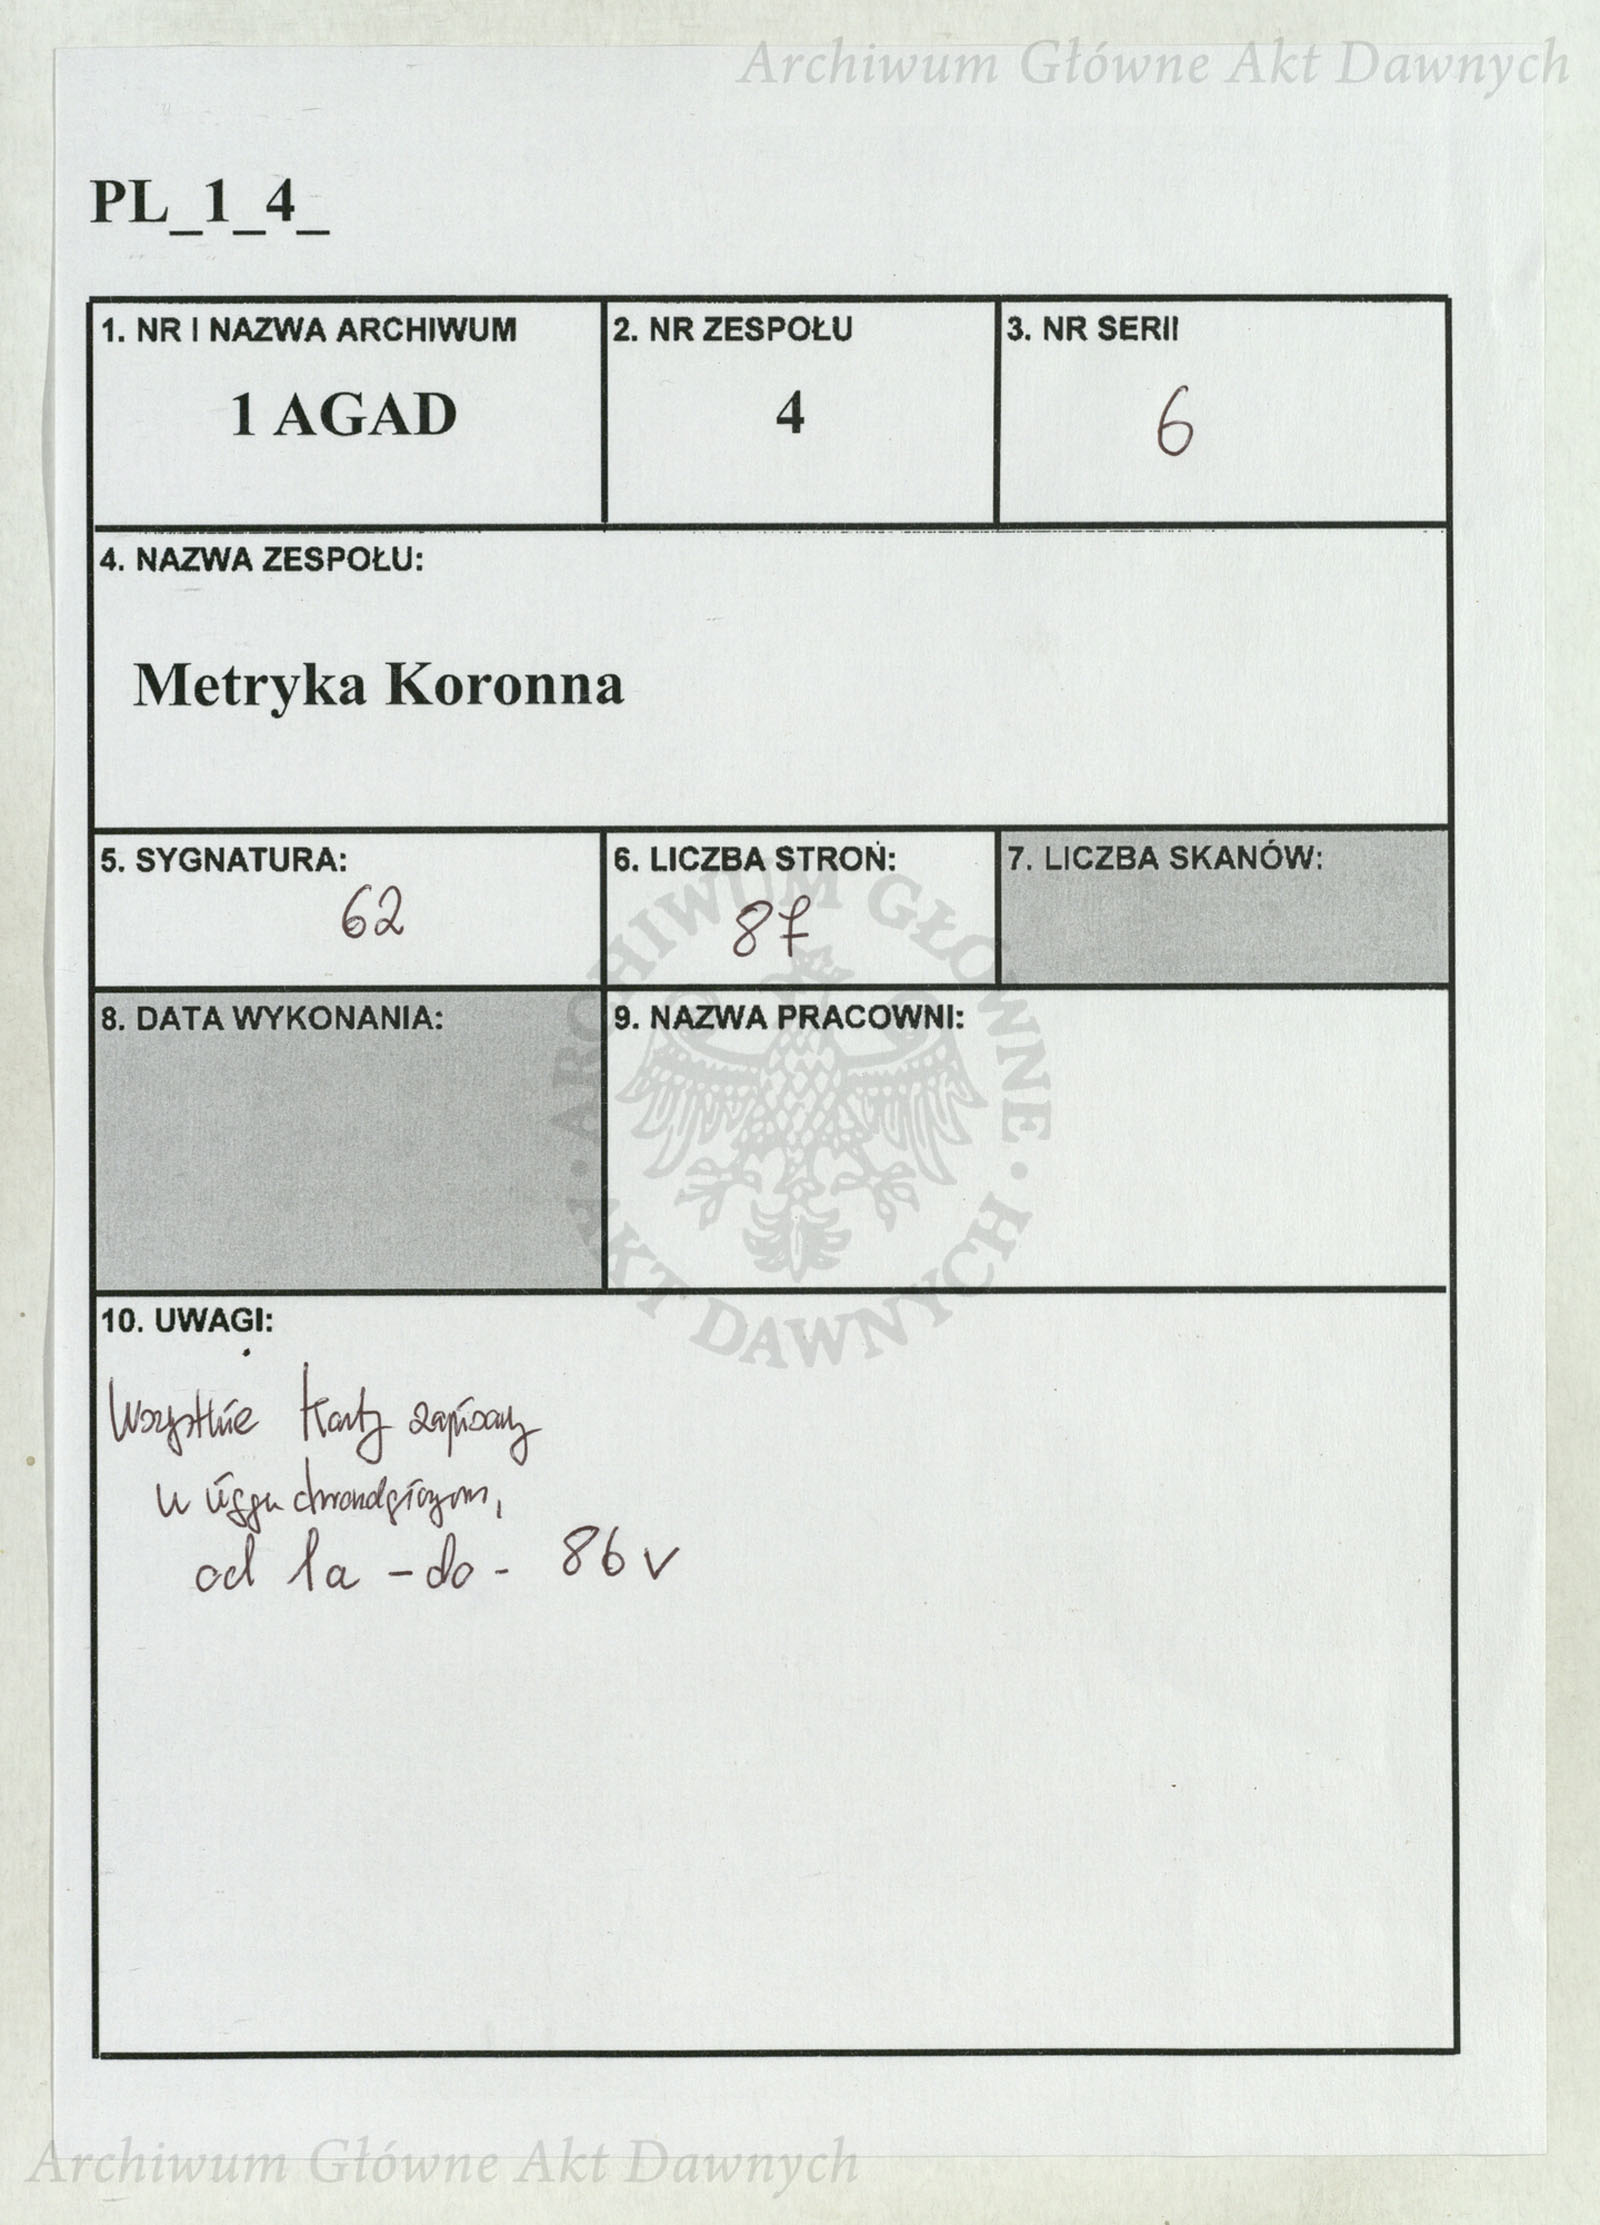 Archiwum Główne Akt Dawnych
PL_1_4_
1. NR I NAZWA ARCHIWUM
1 AGAD
2. NR ZESPOŁU
4
3. NR SERII
6
4. NAZWA ZESPOŁU:
Metryka Koronna
5. SYGNATURA:
62
6. LICZBA STRON:
87
7. LICZBA SKANÓW:
8. DATA WYKONANIA:
9. NAZWA PRACOWNI:
ARCHIWUM GŁÓWNE AKT DAWNYCH
10. UWAGI:
Wszystkie karty zapisany
w
od 1a - do - 86v
Archiwum Główne Akt Dawnych